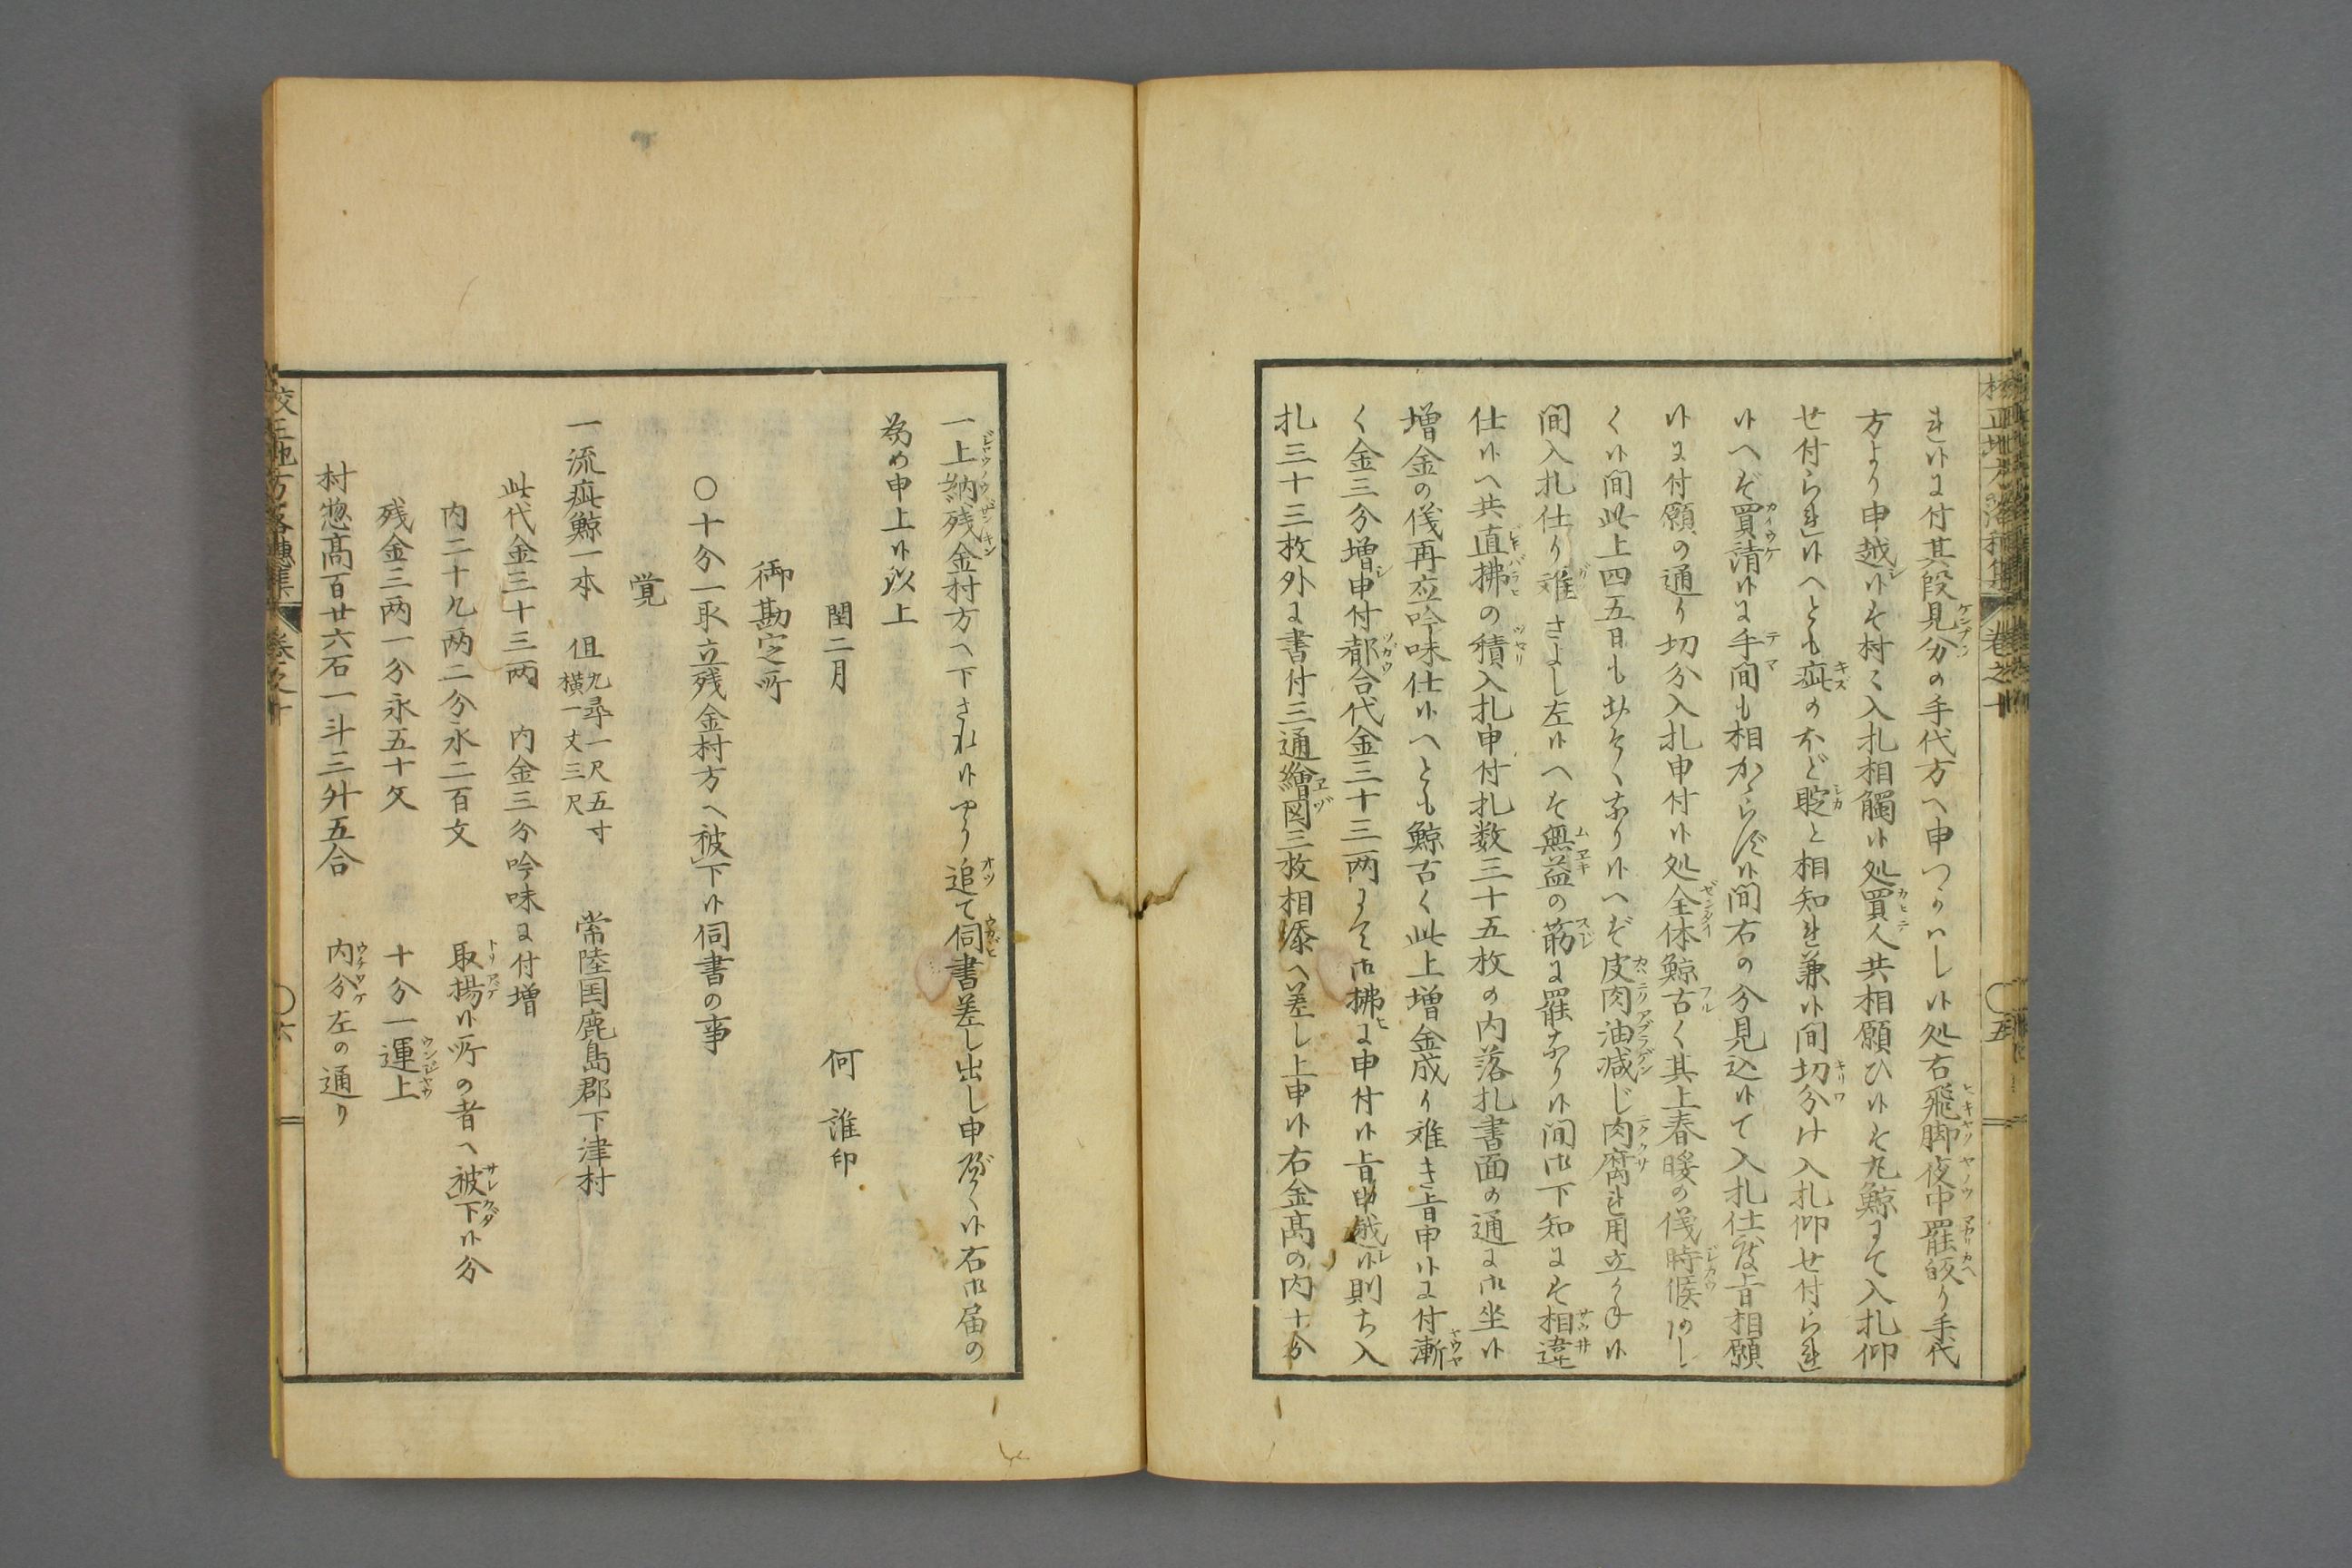 れ候に付其段見分の手代方へ申つかハし候処右飛脚夜中罷皈り手代
方より申越候は村々入札相觸候処買人共相願ひ候は丸鯨にて入札仰
せ付られ候へとも疵のほど聢と相知れ兼候間切分け入札仰せ付られ
候へば買請候に手間も相かゝらず候間右の分見込候て入札仕度旨相願
候に付願の通り切分入札申付候処全体鯨古く其上春暖の儀時候
く候間此上四五日も なり候へば皮肉油減じ肉腐れ用立かね候
間入札仕り難きよし左候へは無益の筋に罷なり候間御下知には相違
仕候へ共直拂の積入札申付札数三十五枚の内落札書面の通に御坐候
増金の儀再應吟味仕候へとも鯨古く此上増金成り難き旨申候に付漸
く金三分増申付都合代金三十三両にて御拂に申付候旨申越候則ち入
札三十三枚外に書付三通繪図三枚相添へ差し上申候右金髙の内十分
一上納残金村方へ下され候 追て伺書差し出し申べく候右御届の
為め申上候以上
閏二月　何　誰印
御勘定所
〇十分一取立残金村方へ被下候伺書の事
覚
一流疵鯨一本　但　九尋一尺五寸　横一丈三尺　常陸国鹿島郡下津村
此代金三十三両　内金三分吟味に付増
内二十九両二分永二百文　取揚候所の者へ被下候分
残金三両一分永五十文　十分一運上
村惣髙百廿六石一斗三升五合　内分左の通り
校正地方落穂集　巻之十　〇五
校正地方落穂集　巻之十　〇六